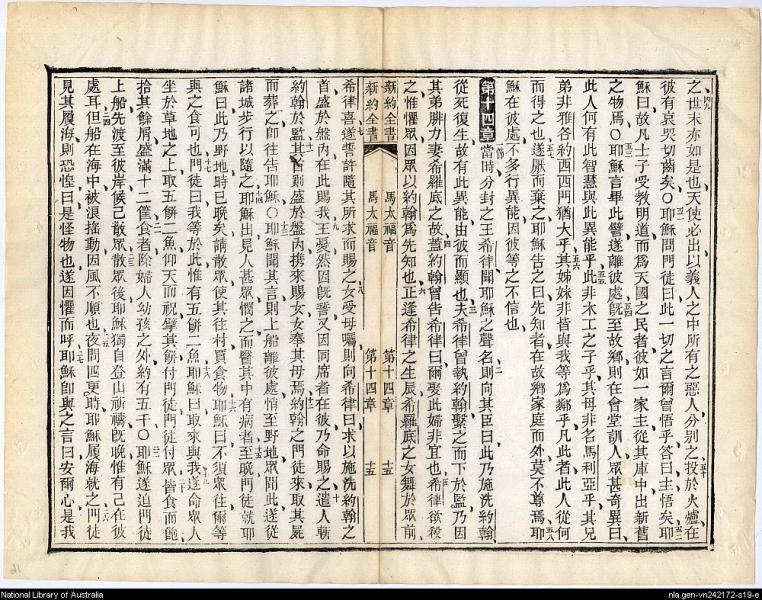 之世末亦如是也天使必出以義人之中所有之惡人分別之投於火爐在
彼有哀哭切齒矣〇耶穌問門徒曰此一切之言爾曾悟乎答曰主悟矣耶
穌曰故凡士子受教明道而爲天國之民者彼如一家主從其庫中出新舊
之物焉〇耶穌言畢此譬遂離彼處旣至故鄉則在會堂訓人眾甚奇異曰
此人何有此智慧與此異能乎此非木工之子乎其母非名馬利亞乎其兄
弟非雅各約西西門猶大乎其姊妹非皆與我等爲鄰乎凡此者此人從何
而得之也遂厭而棄之耶穌告之曰先知者在故鄉家庭而外莫不尊焉耶
穌在彼處不多行異能因彼等之不信也
第十四章 當時分封之王希律聞耶穌之聲名則向其臣曰此乃施洗約翰
從死復生故有此異能由彼而顯也夫希律曾執約翰繫之而下於監乃因
其弟腓力妻希羅底之故蓋約翰曾告希律曰爾娶此婦非宜也希律欲殺
之惟懼眾因眾以約翰爲先知也正逢希律之生辰希羅底之女舞於眾前
新約全書 馬太福音 第十四章 十五
新約全書 馬太福音 第十四章 十五
希律喜遂誓許隨其所求而賜之女受母囑則向希律曰求以施洗約翰之
首盛於盤內在此賜我王憂然因旣誓又因同席者在彼乃命賜之遣人斬
約翰於監其首則盛於盤內携來賜女女奉其母焉約翰之門徒來取其屍
而葬之卽往告耶穌〇耶穌聞其言則上船離彼處悄至野地眾聞此遂從
諸城步行以隨之耶穌出見人甚眾憫之而醫其中有病者至晚門徒就耶
穌曰此乃野地時已晚矣請散眾使其往村買食物耶穌曰不須眾往爾等
與之食可也門徒曰我等於此惟有五餅二魚耶穌曰取來與我遂命眾人
坐於草地之上取五餅二魚仰天而祝擘其餅付門徒門徒付眾皆食而飽
拾其餘屑盛滿十二筐食者除婦人幼孩之外約有五千〇耶穌遂迫門徒
上船先渡至彼岸候己散眾散眾後耶穌獨自登山祈禱旣晚惟有己在彼
處耳但船在海中被浪搖動因風不順也夜間四更時耶穌履海就之門徒
見其履海則恐惶曰是怪物也遂因懼而呼耶穌卽與之言曰安爾心是我
National Library of Australia
nla.gen-vn242172-s19-e